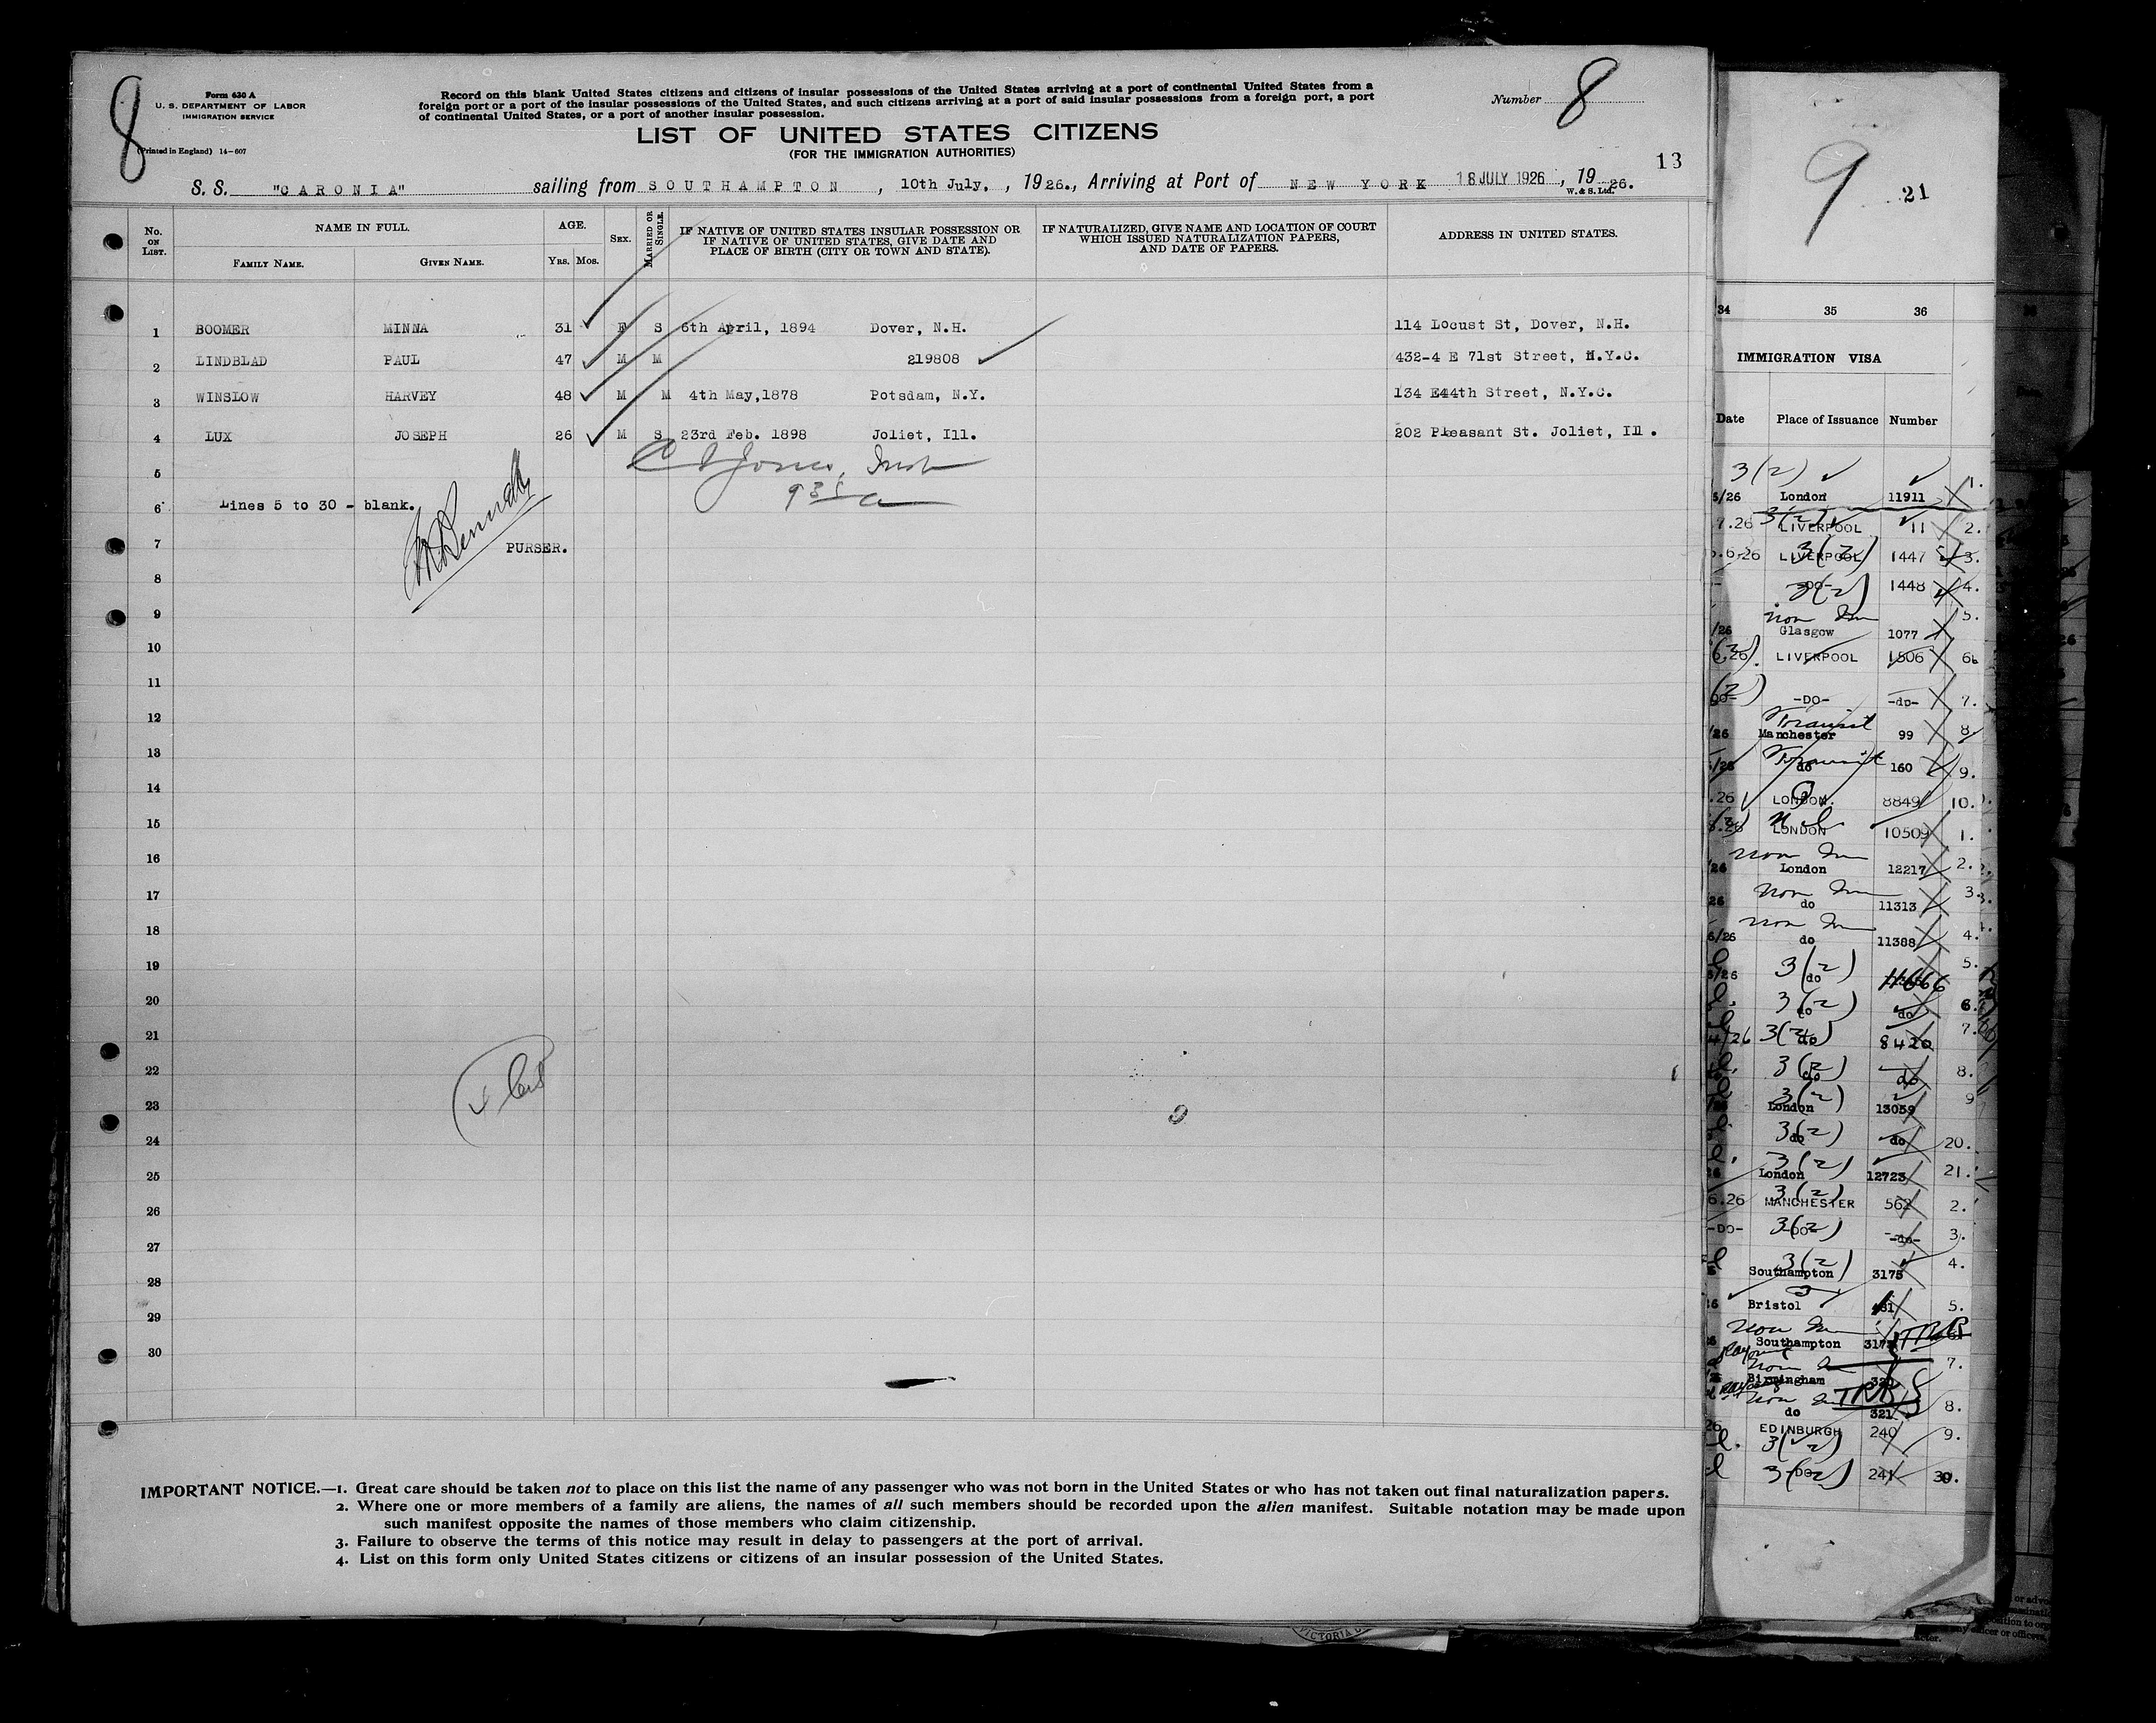 8
Form 630 A
U. S. DEPARTMENT OF LABOR
IMMIGRATION SERVICE
(Printed in England) 14-607
Record on this blank United States citizens and citizens of insular possessions of the United States arriving at a port of continental United States from a
foreign port or a port of the insular possessions of the United States, and such citizens arriving at a port of said insular possessions from a foreign port, a port
of continental United States, or a port of another insular possession.
Number 8
LIST OF UNITED STATES CITIZENS
(FOR THE IMMIGRATION AUTHORITIES)
13
S. S. "CARONIA" sailing from SOUTHAMPTON, 10th July, , 1926., Arriving at Port of NEW YORK 18 JULY 1926, 1926.
W. & S. Ltd.
No. ON LIST.
NAME IN FULL.
FAMILY NAME.
GIVEN NAME.
AGE.
Yrs. Mos.
SEX.
MARRIED OR SINGLE.
IF NATIVE OF UNITED STATES INSULAR POSSESSION OR
IF NATIVE OF UNITED STATES, GIVE DATE AND
PLACE OF BIRTH (CITY OR TOWN AND STATE).
IF NATURALIZED, GIVE NAME AND LOCATION OF COURT
WHICH ISSUED NATURALIZATION PAPERS,
AND DATE OF PAPERS.
ADDRESS IN UNITED STATES.
1 BOOMER MINNA 31 F S 6th April, 1894 Dover, N.H. 114 Locust St, Dover, N.H.
2 LINDBLAD PAUL 47 M M 219808 432-4 E 71st Street, N.Y.C.
3 WINSLOW HARVEY 48 M M 4th May,1878 Potsdam, N.Y. 134 E44th Street, N.Y.C.
4 LUX JOSEPH 26 M S 23rd Feb. 1898 Joliet, Ill. 202 Pleasant St. Joliet, Ill.
5
6 Lines 5 to 30 - blank.
7 PURSER.
8
9
10
11
12
13
14
15
16
17
18
19
20
21
22
23
24
25
26
27
28
29
30
IMPORTANT NOTICE.—1. Great care should be taken not to place on this list the name of any passenger who was not born in the United States or who has not taken out final naturalization papers.
2. Where one or more members of a family are aliens, the names of all such members should be recorded upon the alien manifest. Suitable notation may be made upon
such manifest opposite the names of those members who claim citizenship.
3. Failure to observe the terms of this notice may result in delay to passengers at the port of arrival.
4. List on this form only United States citizens or citizens of an insular possession of the United States.
9
21
34 35 36
IMMIGRATION VISA
Date Place of Issuance Number
3(2)
London 11911 1.
LIVERPOOL 11 2.
LIVERPOOL 1447 3.
-DO- 1448 4.
Glasgow 1077 5.
LIVERPOOL 1506 6
-DO- -do- 7.
Transit
Manchester 99 8
Transit
do 160 9.
LONDON. 8849 10.
LONDON 10509 1.
London 12217 2.
do 11313 3.
do 11388 4.
3(2)
do 11666 5.
3(2)
do do 6.
3(2)
do 8420 7.
3(2)
do do 8.
3(2)
London 13059 9
3(2)
do do 20.
3(2)
London 12723 21.
3(2)
MANCHESTER 562 2.
-DO- 3(2) -do- 3.
3(2)
Southampton 3175 4.
Bristol 5.
Southampton
Birmingham 7.
TRB
do 321 8.
EDINBURGH 240 9.
3(2)
-DO- 241 30.